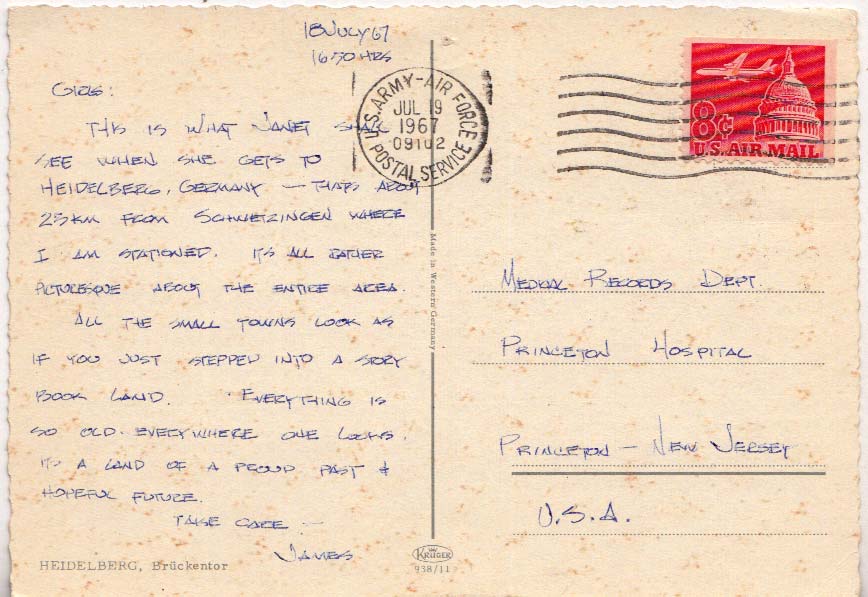 18 JULY 67
1650 HRS
GIRLS:
THIS IS WHAT JANET SHALL
SEE WHEN SHE GETS TO
HEIDELBERG, GERMANY — THATS ABOUT
25KM FROM SCHWETZINGEN WHERE
I AM STATIONED. ITS ALL RATHER
PICTURESQUE ABOUT THE ENTIRE AREA.
ALL THE SMALL TOWNS LOOK AS
IF YOU JUST STEPPED INTO A STORY
BOOK LAND. EVERYTHING IS
SO OLD EVERYWHERE ONE LOOKS.
ITS A LAND OF A PROUD PAST &
HOPEFUL FUTURE.
TAKE CARE —
JAMES
HEIDELBERG, Brückentor
Made in Western Germany
KRÜGER
938/11
U.S. ARMY-AIR FORCE
JUL 19
1967
09102
POSTAL SERVICE
8¢
U.S. AIR MAIL
MEDICAL RECORDS DEPT.
PRINCETON HOSPITAL
PRINCETON — NEW JERSEY
U.S.A.